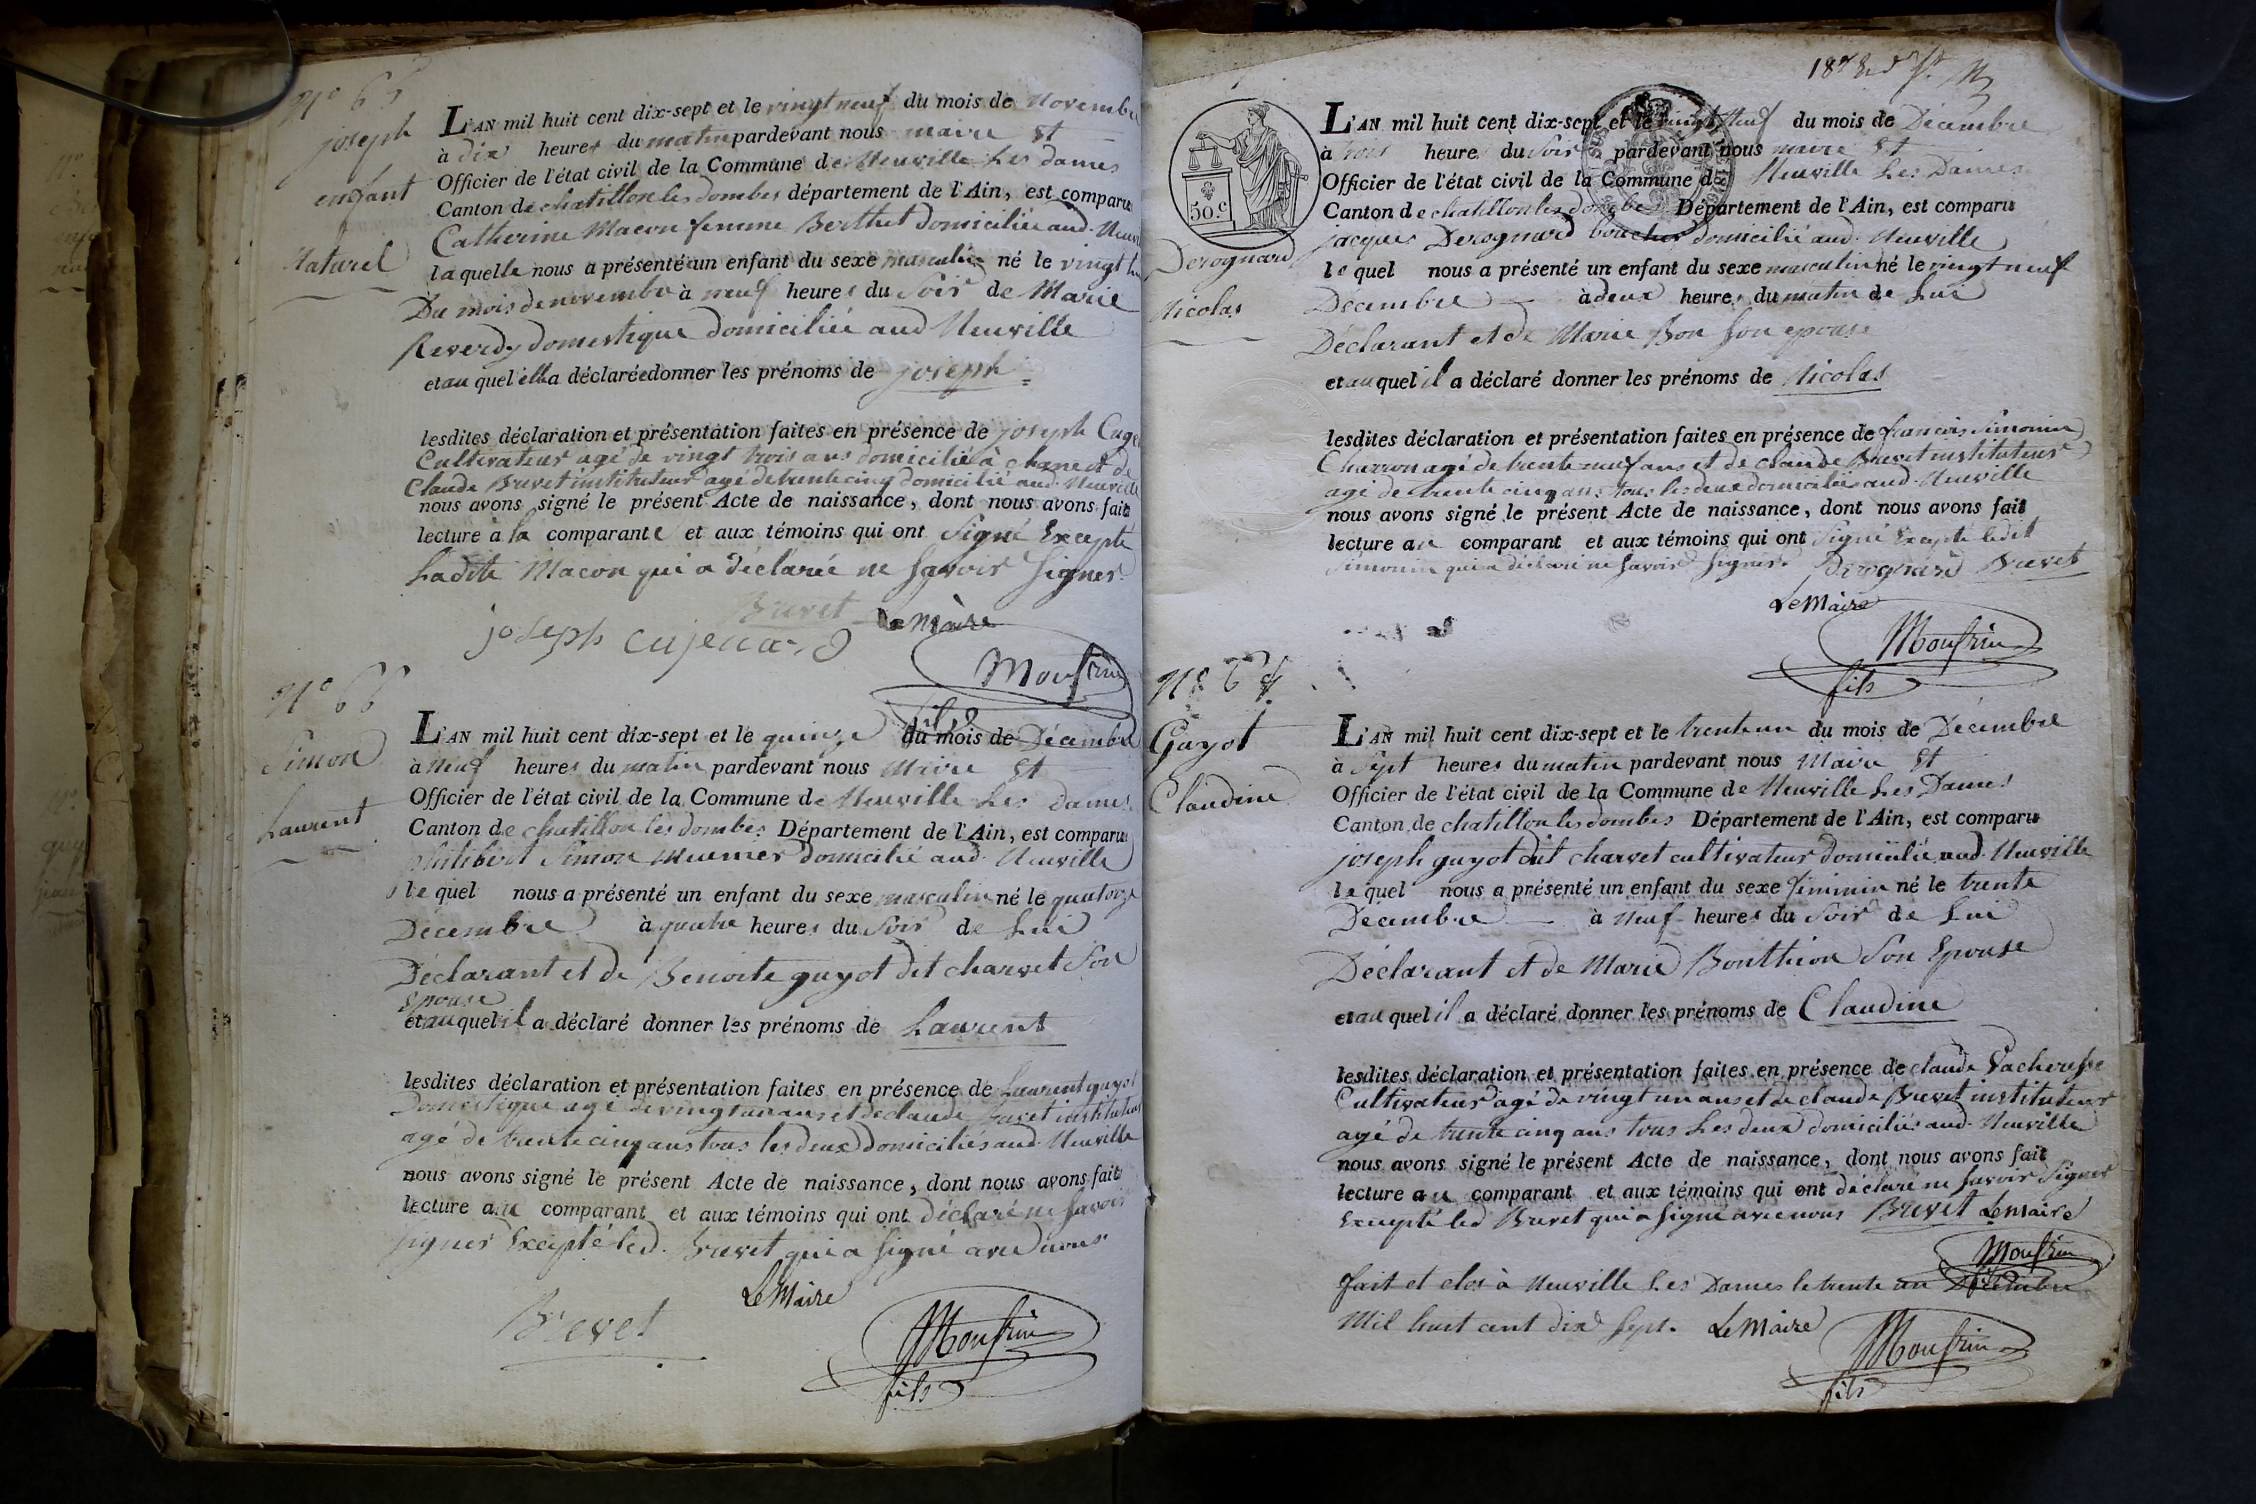 N° 65
joseph
enfant
Naturel
L'AN mil huit cent dix-sept et le vingt neuf du mois de Novembre
à dix heures du matin pardevant nous maire et
Officier de l'état civil de la Commune de Neuville Les dames
Canton de chatillon les dombes département de l'Ain, est comparu
Catherine Macon femme Berthet domiciliée aud. Neuville
laquelle nous a présenté un enfant du sexe masculin né le vingt
Du mois de novembre à neuf heures du Soir de Marie
Reverdy domestique domiciliée aud Neuville
et au quel elle a déclarée donner les prénoms de joseph
lesdites déclaration et présentation faites en présence de joseph
Cultivateur agé de vingt trois ans domicilié à et de
Claude Brevet instituteur agé de trente cinq domicilié aud. Neuville
nous avons signé le présent Acte de naissance, dont nous avons fait
lecture à la comparante et aux témoins qui ont Signé Excepté
Ladite Macon qui a déclarée ne Savoir Signer
Brevet Le Maire
joseph cujenard
Monfrin
fils
N° 66
Simon
Laurent
L'AN mil huit cent dix-sept et le quinze du mois de Décembre
à Neuf heures du matin pardevant nous Maire Et
Officier de l'état civil de la Commune de Neuville Les Dames
Canton de chatillon les dombes Département de l'Ain, est comparu
philibert Simon Meunier domicilié aud. Neuville
le quel nous a présenté un enfant du sexe masculin né le quatorze
Décembre à quatre heures du Soir de Lui
Déclarant et de Benoite guyot dit charvet Son
Epouse
et au quel il a déclaré donner les prénoms de Laurent
lesdites déclaration et présentation faites en présence de Laurent guyot
Domestique agé de vingt un ans et de claude Brevet instituteur
agé de trente cinq ans tous les deux domiciliés aud. Neuville
nous avons signé le présent Acte de naissance, dont nous avons fait
lecture au comparant et aux témoins qui ont déclaré ne Savoir
signer Excepté led. Brevet qui a Signé avec nous
Le Maire
Brevet
Monfrin
fils
50.c
Derognard
Nicolas
L'AN mil huit cent dix-sept et le vingt Neuf du mois de Décembre
à trois heures du Soir pardevant nous maire Et
Officier de l'état civil de la Commune de Neuville Les Dames
Canton de chatillon les dombes Département de l'Ain, est comparu
jacques Derognard boucher domicilié aud. Neuville
le quel nous a présenté un enfant du sexe masculin né le vingt neuf
Décembre à deux heures du matin de Lui
Déclarant et de Marie Bon Son epouse
et au quel il a déclaré donner les prénoms de Nicolas
lesdites déclaration et présentation faites en présence de francois Simonin
Charron agé de trente neuf ans et de claude Brevet instituteur
agé de trente cinq ans tous les deux domiciliés aud. Neuville
nous avons signé le présent Acte de naissance, dont nous avons fait
lecture au comparant et aux témoins qui ont Signé Excepté ledit
Simonin qui a déclaré ne Savoir Signer. Derognard Brevet
Le Maire
Monfrin
fils
Guyot
Claudine
L'AN mil huit cent dix-sept et le trente un du mois de Décembre
à Sept heures du matin pardevant nous Maire Et
Officier de l'état civil de la Commune de Neuville Les Dames
Canton de chatillon les dombes Département de l'Ain, est comparu
joseph guyot dit charvet cultivateur domicilié aud. Neuville
le quel nous a présenté un enfant du sexe féminin né le trente
Décembre à Neuf heures du Soir de Lui
Déclarant et de Marie Bonthion Son Epouse
et au quel il a déclaré donner les prénoms de Claudine
lesdites déclaration et présentation faites en présence de claude Vacheresse
Cultivateur agé de vingt un ans et de claude Brevet instituteur
agé de trente cinq ans tous Les deux domiciliés aud. Neuville
nous avons signé le présent Acte de naissance, dont nous avons fait
lecture au comparant et aux témoins qui ont déclaré ne Savoir Signer
Excepté led Brevet qui a Signé avec nous Brevet Le Maire
Monfrin
fait et clos à Neuville Les Dames le trente un Décembre
Mil huit cent dix Sept. Le Maire
Monfrin
fils